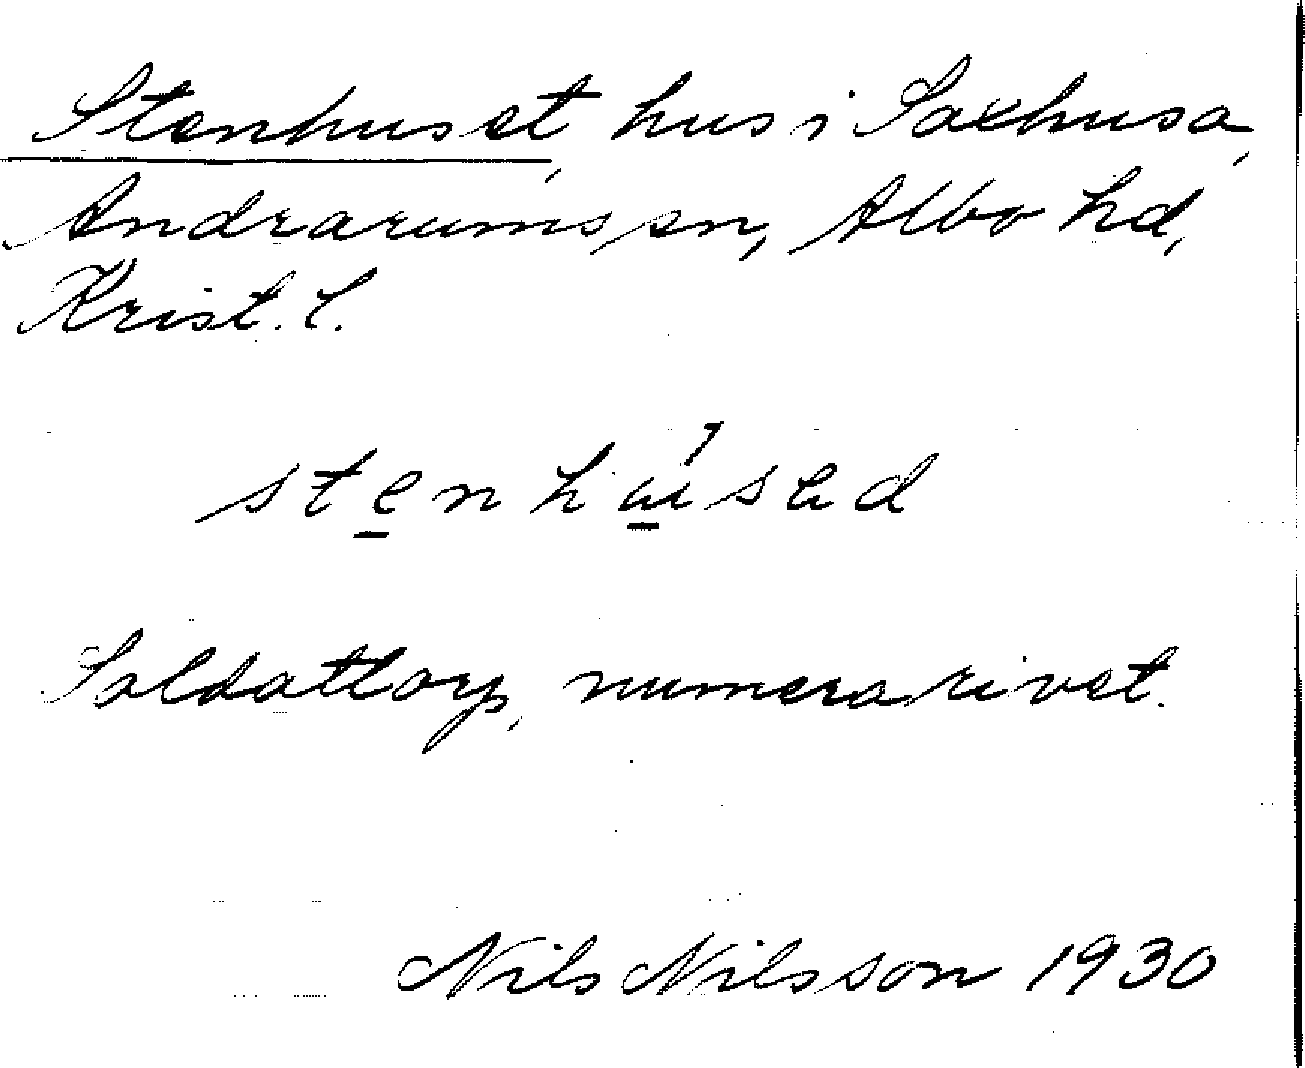 Stenhuset, hus i Saxhusa,
Andrarums sn, Albo hd,
Krist. l.
stenhu̱sed
Soldattorp, numera rivet.
Nils Nilsson 1930